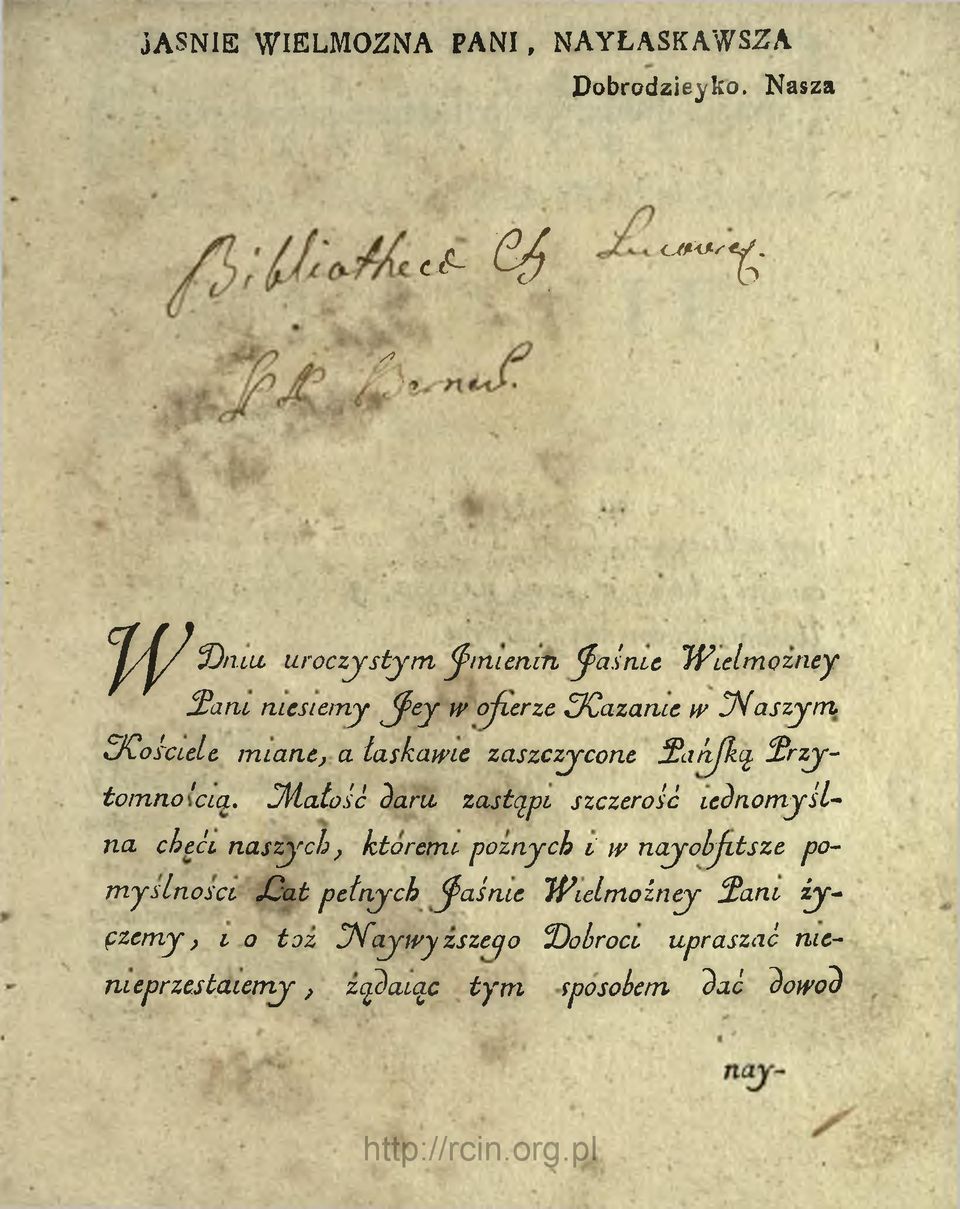 JASNIE WIELMOZNA PANI, NAYŁASKAWSZA
Dobrodzieyko. Nasza
Bibliothecæ
PP Bernard.
W Dniu uroczystym Jmienin Jaśnie Wielmożney
Pani niesiemy Jey w ofierze Kazanie w Naszym
Kościele miane, a łaskawie zaszczycone Pańſką Przy-
tomnością. Małość daru zastąpi szczerość iednomyśl-
na chęci naszych, któremi poźnych i w nayobfitsze po-
myślności Lat pełnych Jaśnie Wielmożney Pani ży-
czemy, i o toż Naywyższego Dobroci upraszać nie-
nieprzestaiemy, żądaiąc tym sposobem dać dowod
nay-
http://rcin.org.pl